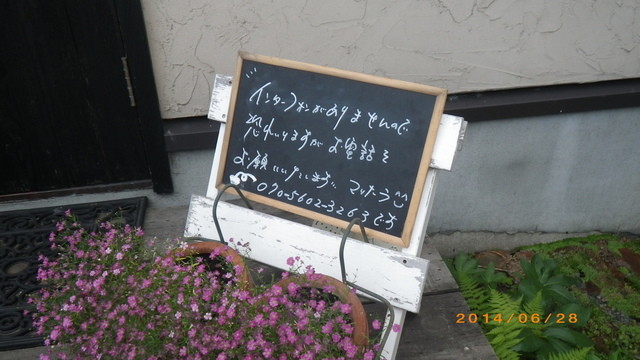 インターフォンがありませんので
恐れいりますがお電話を
お願いいたします。
070-5602-3263です
2014/06/28